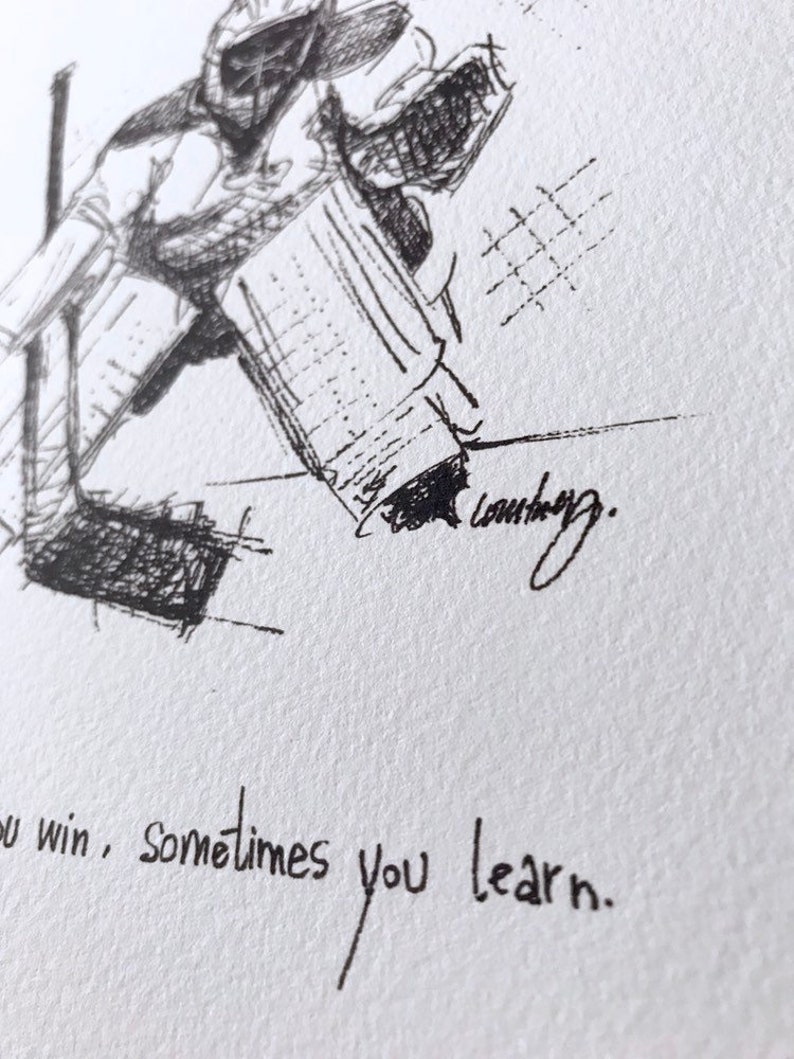 courtney.
ou win, sometimes you learn.